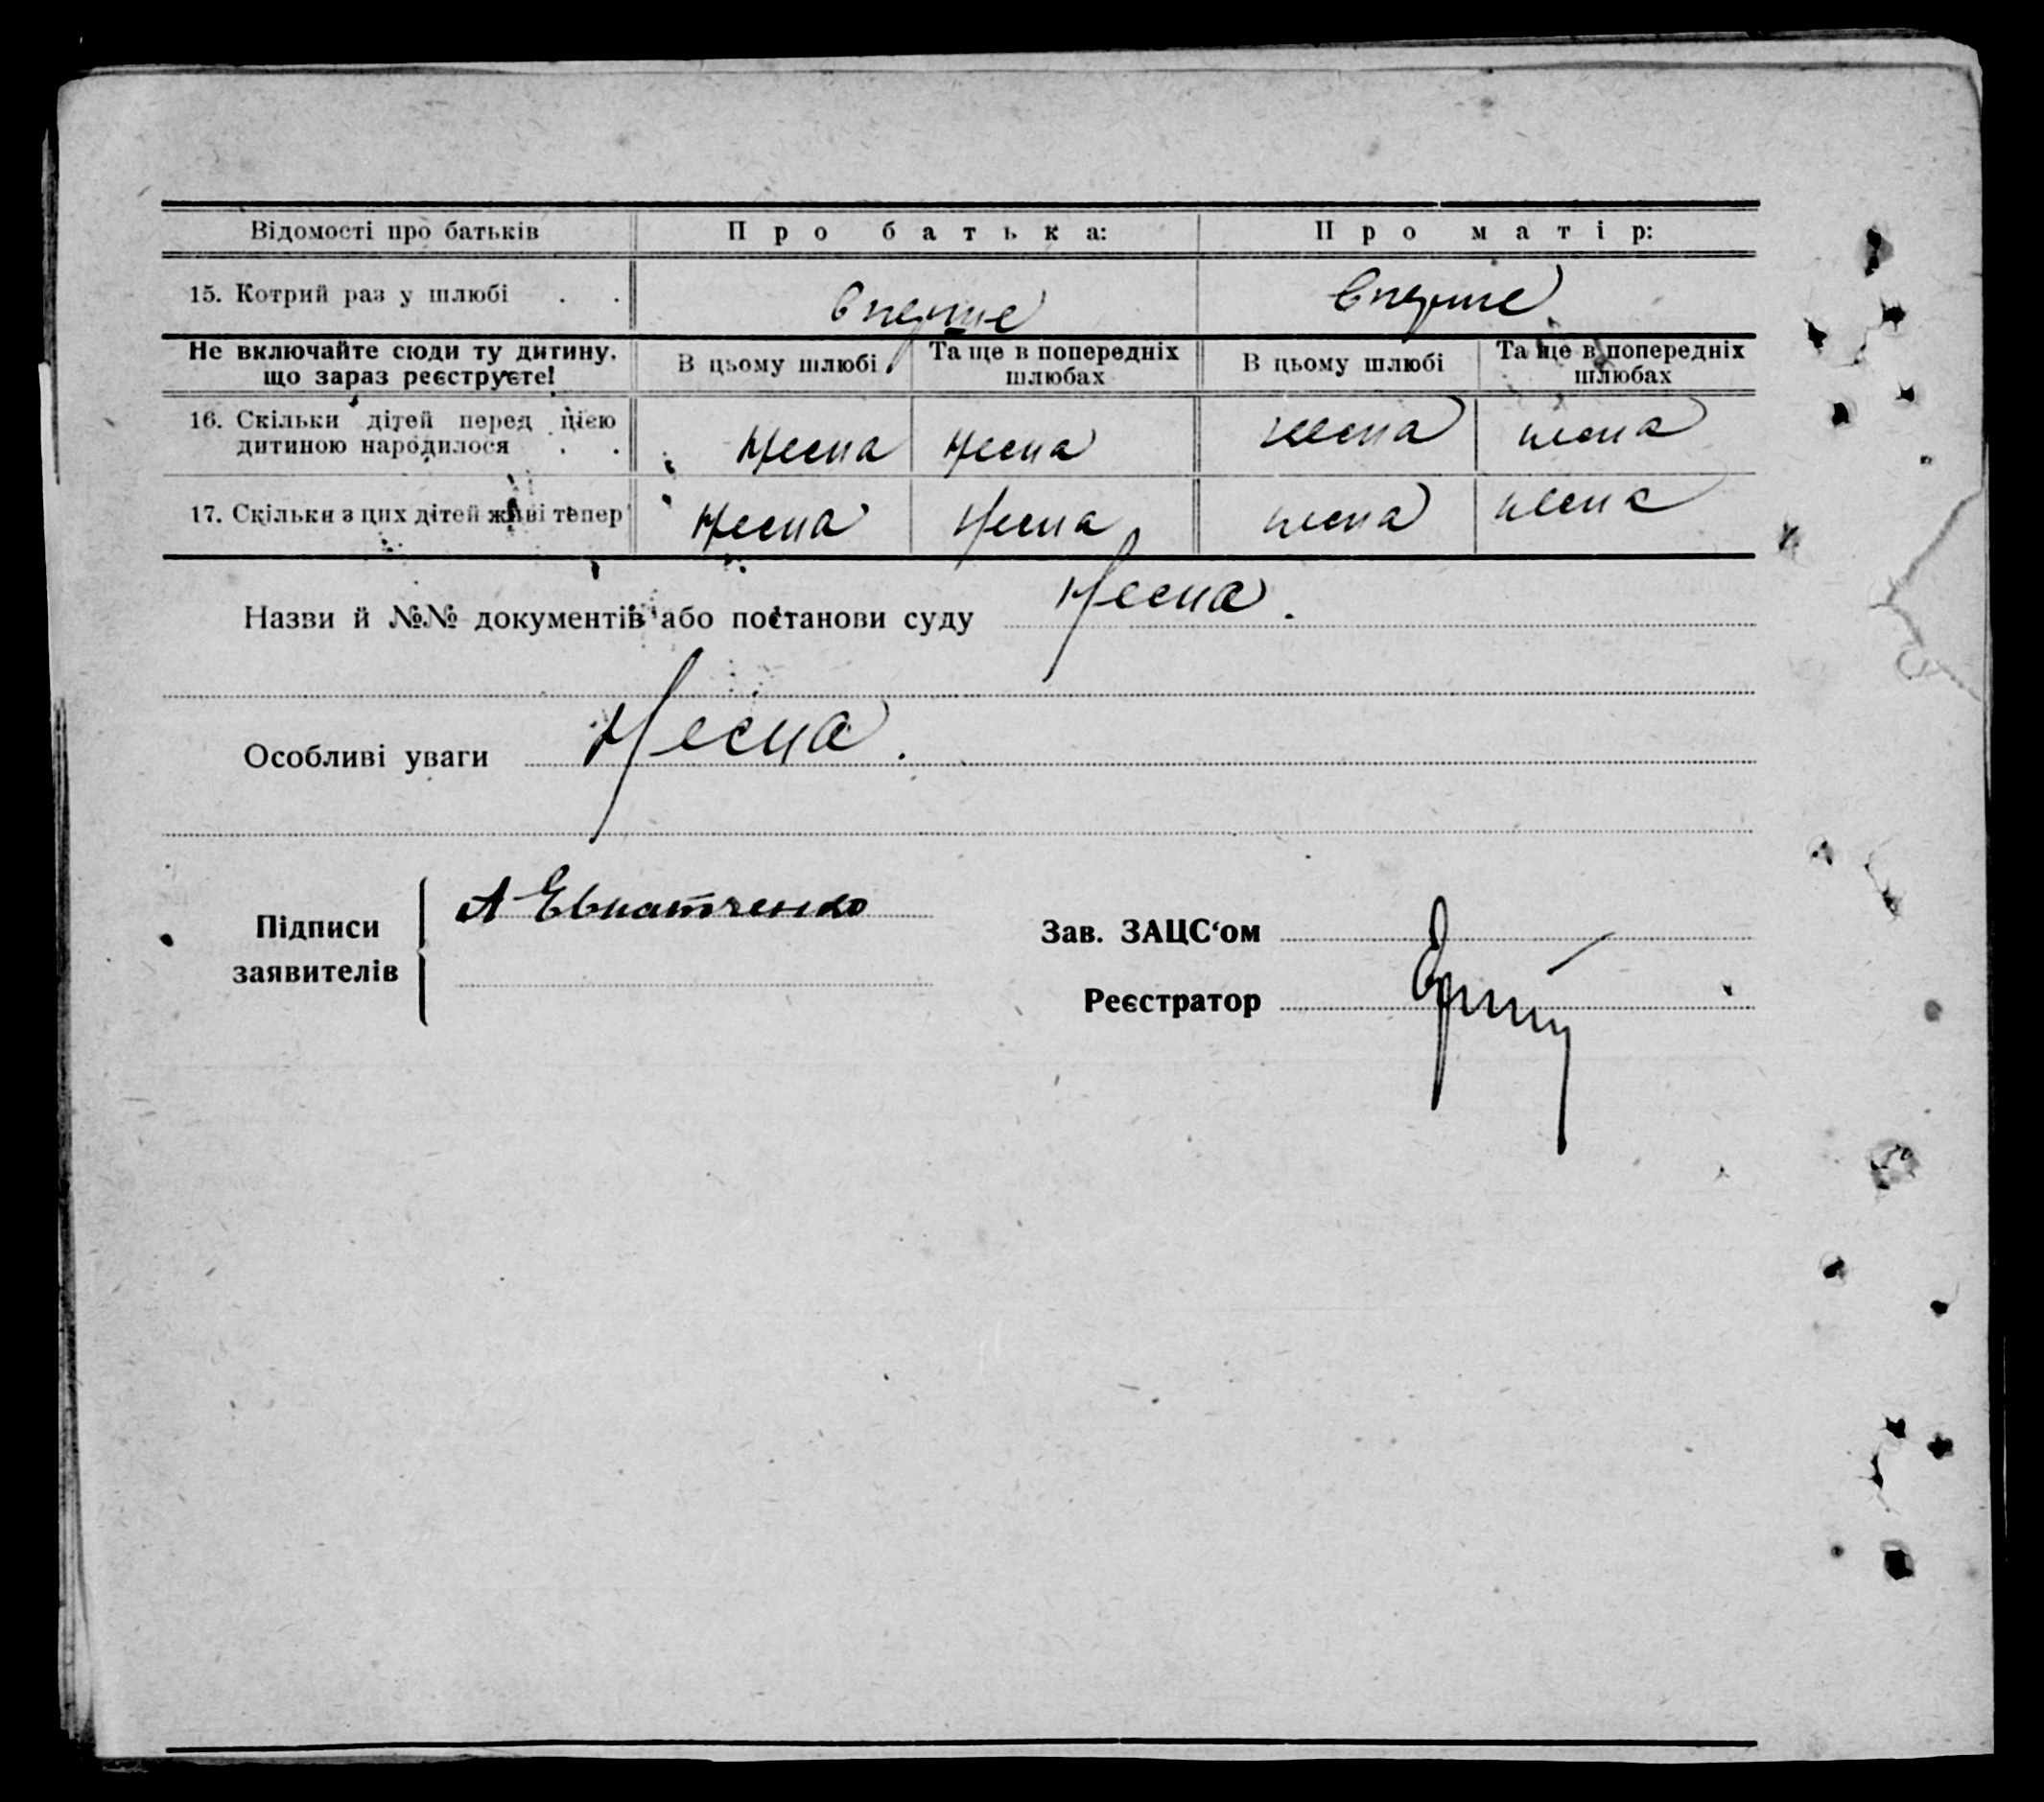 Відомості про батьків Про батька: Про матір:
15. Котрий раз у шлюбі . . вперше вперше
Не включайте сюди ту дитину, що зараз реєструєте! В цьому шлюбі Та ще в попередніх шлюбах В цьому шлюбі Та ще в попередніх шлюбах
16. Скільки дітей перед цією
дитиною народилося . . Неема Неема неема неема
17. Скільки з цих дітей живі тепер Неема Неема неема неема
Назви й №№ документів або постанови суду Неема.
Особливі уваги Неема.
Підписи
заявителів
А
Зав. ЗАЦС‘ом
Реєстратор